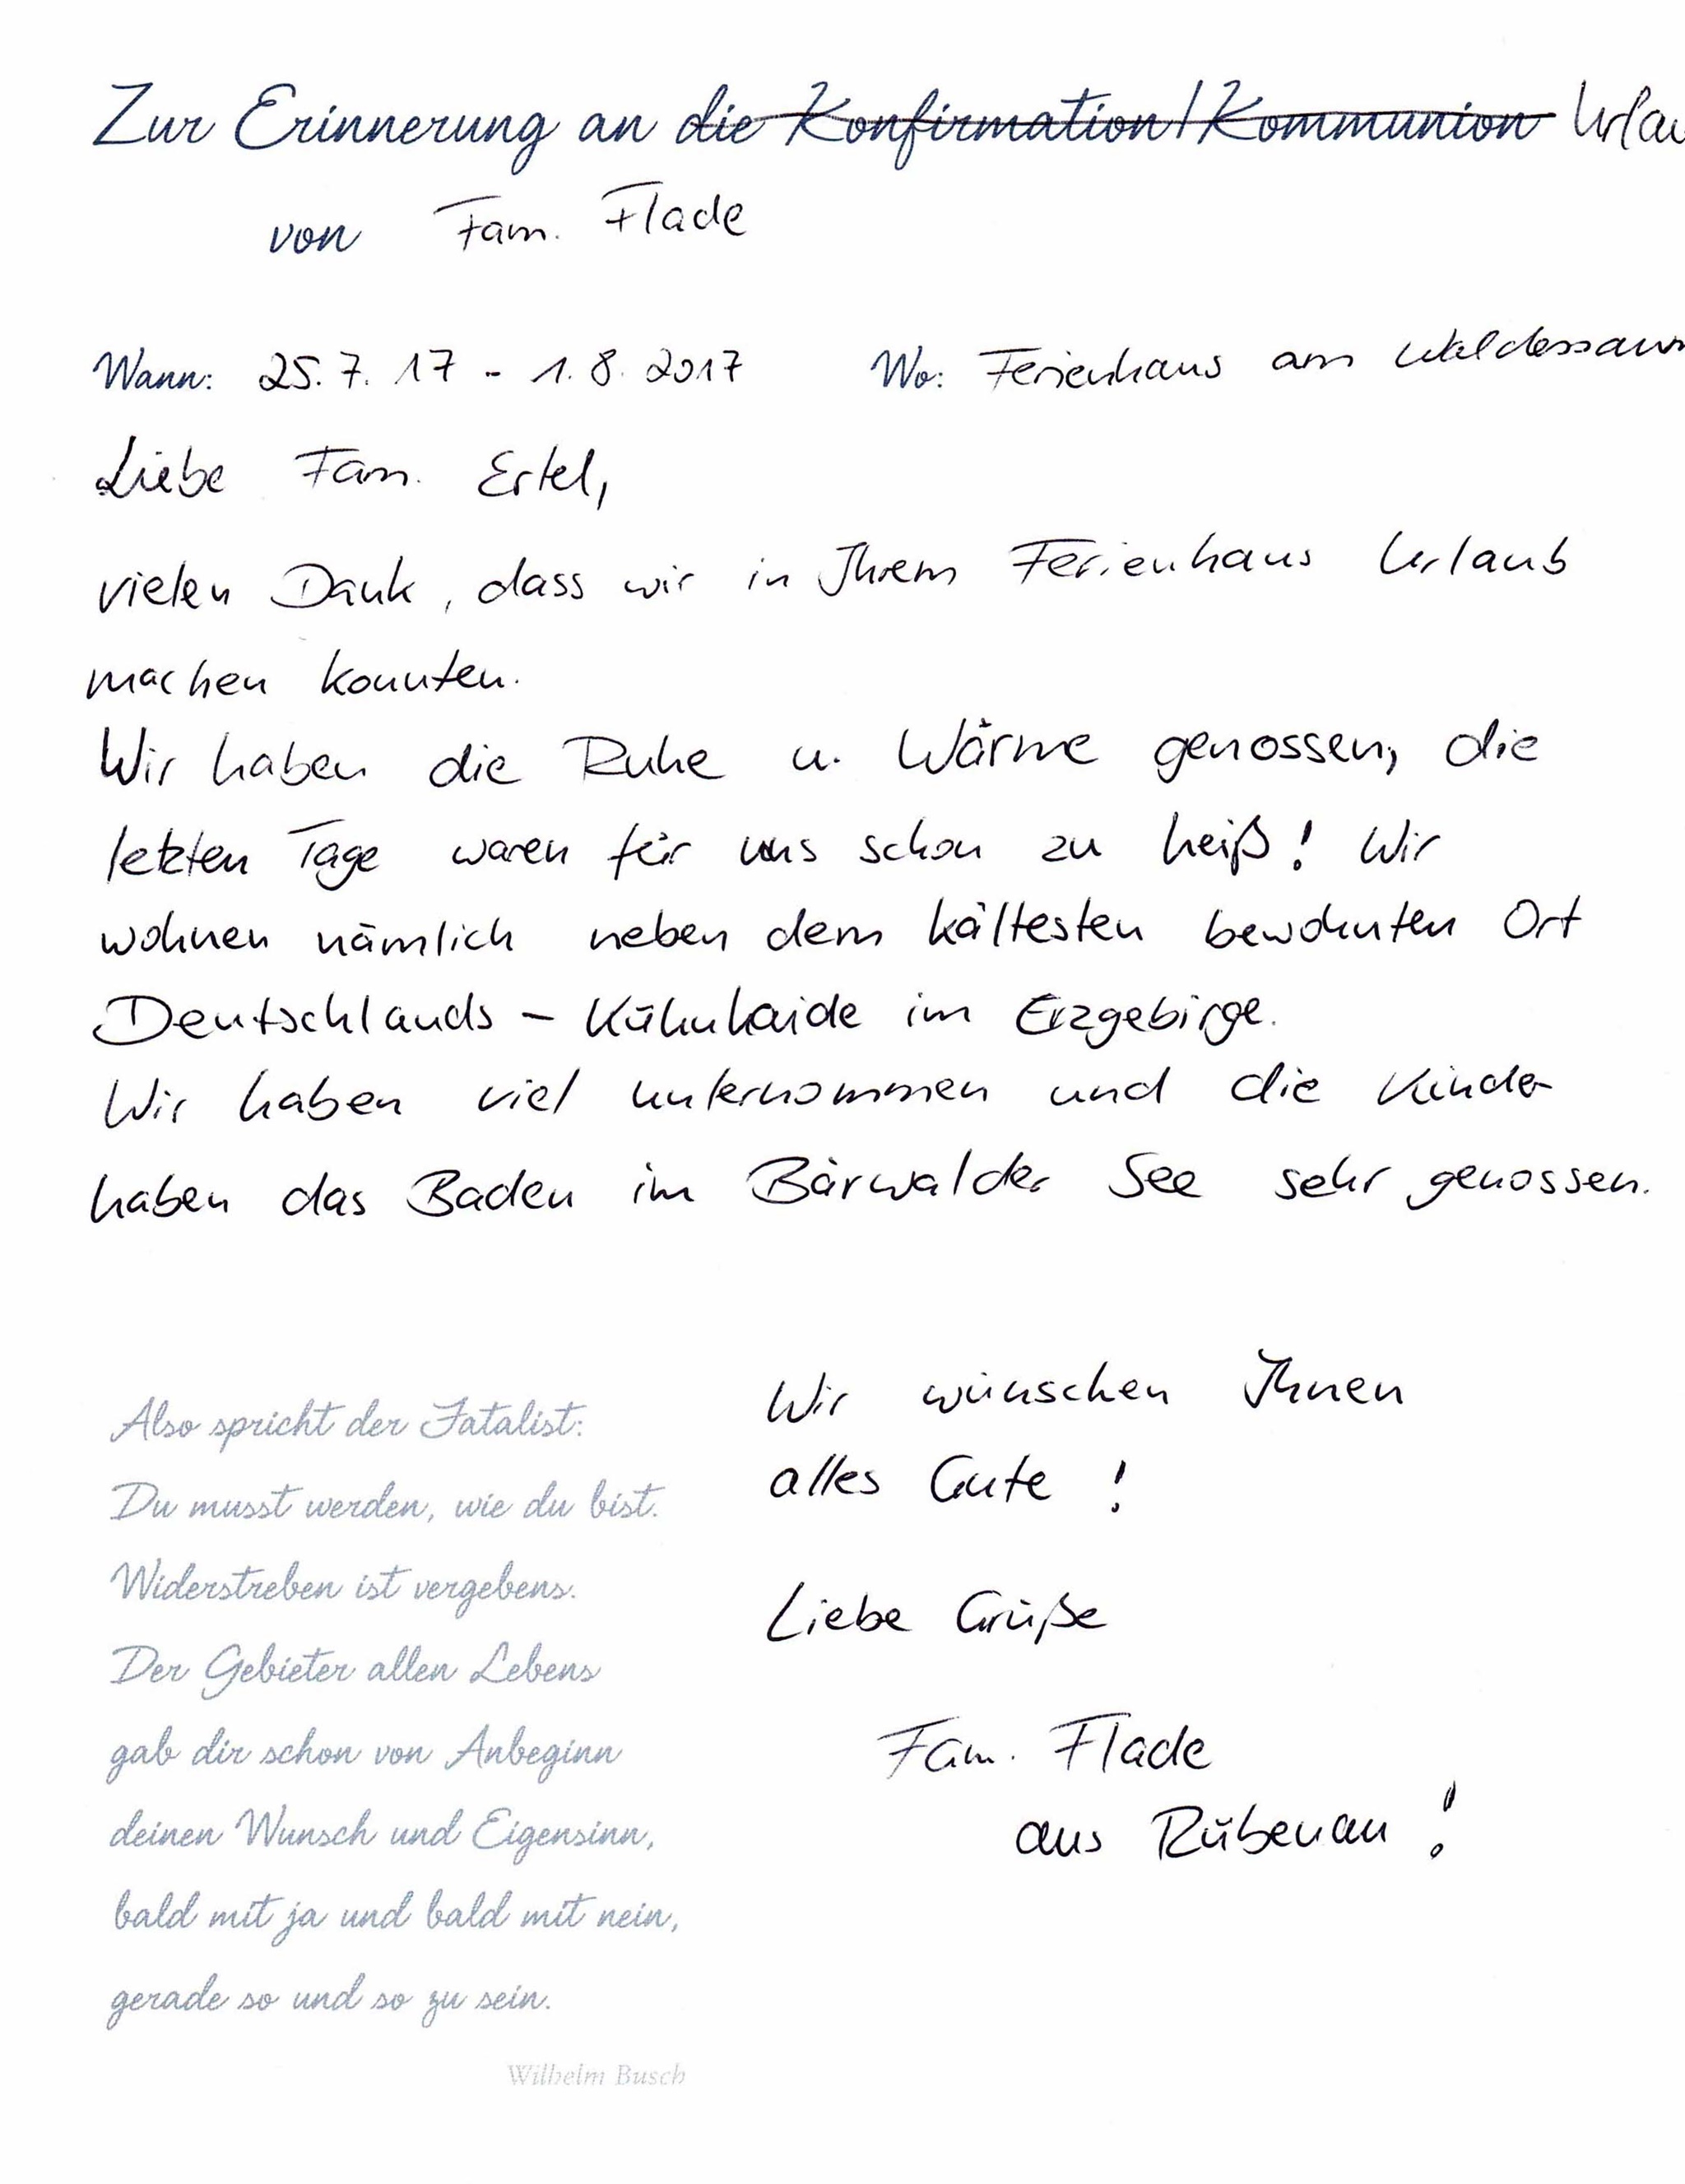 Zur Erinnerung an die Konfirmation/Kommunion Urlau
von Fam. Flade
Wann: 25.7.17 - 1.8.2017 Wo: Ferienhaus am Waldessaum
Liebe Fam. Ertel,
vielen Dank, dass wir in Ihrem Ferienhaus Urlaub
machen konnten.
Wir haben die Ruhe u. Wärme genossen, die
letzten Tage waren für uns schon zu heiß! Wir
wohnen nämlich neben dem kältesten bewohnten Ort
Deutschlands - Kühnhaide im Erzgebirge.
Wir haben viel unternommen und die Kinder
haben das Baden im Bärwalder See sehr genossen.
Wir wünschen Ihnen
alles Gute !
Liebe Grüße
Fam. Flade
aus Rübenau !
Also spricht der Fatalist:
Du musst werden, wie du bist.
Widerstreben ist vergebens.
Der Gebieter allen Lebens
gab dir schon von Anbeginn
deinen Wunsch und Eigensinn,
bald mit ja und bald mit nein,
gerade so und so zu sein.
Wilhelm Busch